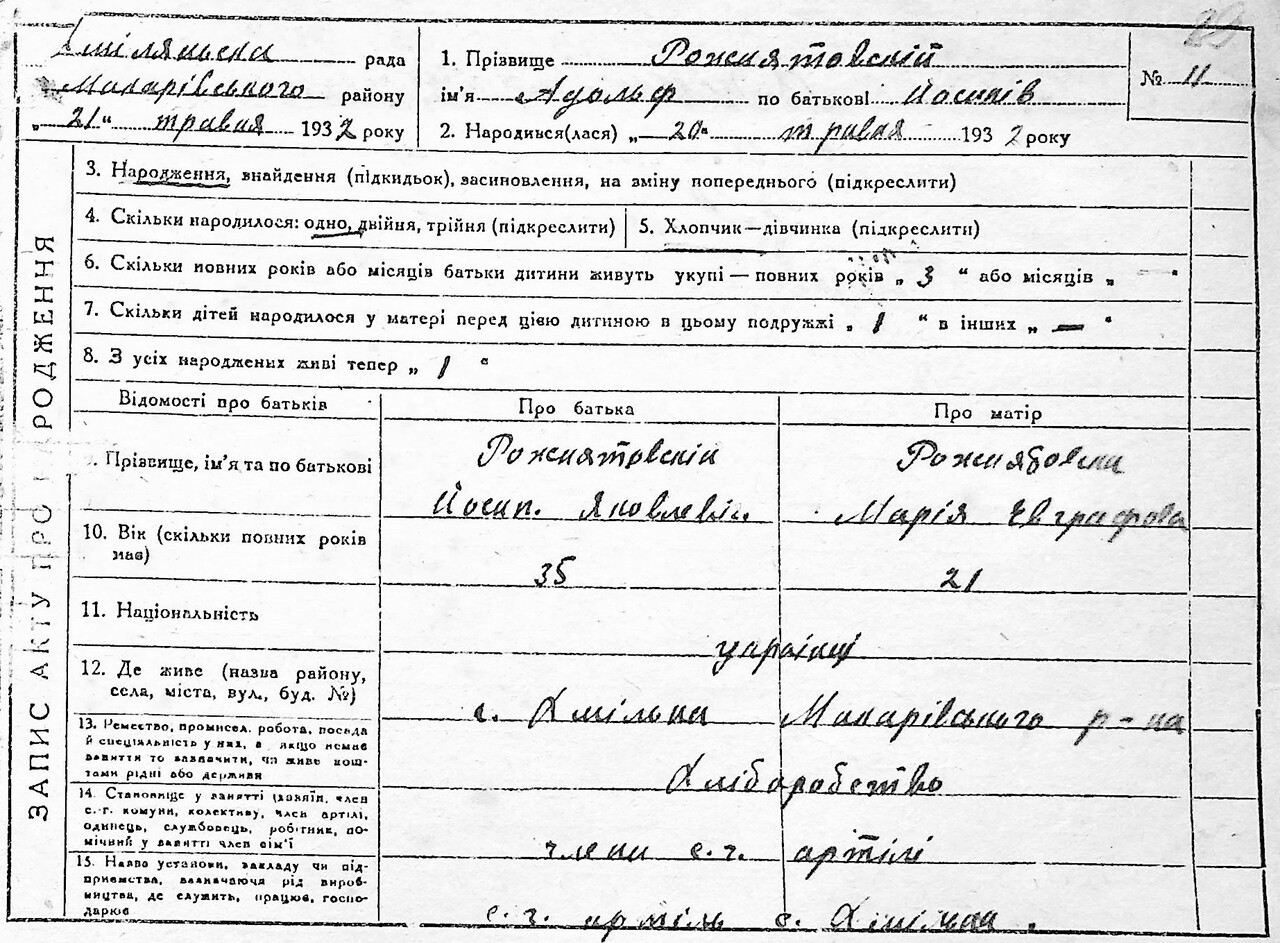 Хміляньска рада
Макарівського району
„ 21 " травня 1932 року
1. Прізвище Рожнятовскій
ім'я Адольф по батькові Йосипів
2. Народився(лася) „ 20 " травня 1932 року
№ 11
ЗАПИС АКТУ ПРО РОДЖЕННЯ
3. Народження, внайдення (підкидьок), васиновлення, на зміну попереднього (підкреслити)
4. Скільки народилося: одно, двійня, трійня (підкреслити)
5. Хлопчик—дівчинка (підкреслити)
6. Скільки повних років або місяців батьки дитини живуть укупі — повних років „ 3 " або місяців „ — "
7. Скільки дітей народилося у матері перед цією дитиною в цьому подружжі „ 1 " в інших „ — "
8. З усіх народжених живі тепер „ 1 "
Відомості про батьків
Про батька
Про матір
9. Прізвище, ім'я та по батькові
Рожнятовскій
Йосип. Яковлевіч.
Рожнятовска
Марія Евграфова
10. Вік (скільки повних років
мав)
35
21
11. Національність
українці
12. Де живе (назва району,
села, міста, вул., буд. №)
с. Хмільна Макарівського р-на
13. Ремество, промисел, робота, посада
й спеціяльність у них, а якщо немає
вавиття то вазначити, чи живе кош-
тами рідні або держави
Хліборобство
14. Становище у занятті (хазяїн, член
с.-г. комуни, колективу, член артілі,
одинець, службовець, робітник, по-
мічний у занятті член сім'ї
члени с.г. артілі
15. Назва установи, закладу чи під-
приємства, вазначаючи рід вироб-
ництва, де служить, працює, госпо-
дарює
с. г. артіль с. Хмільна.